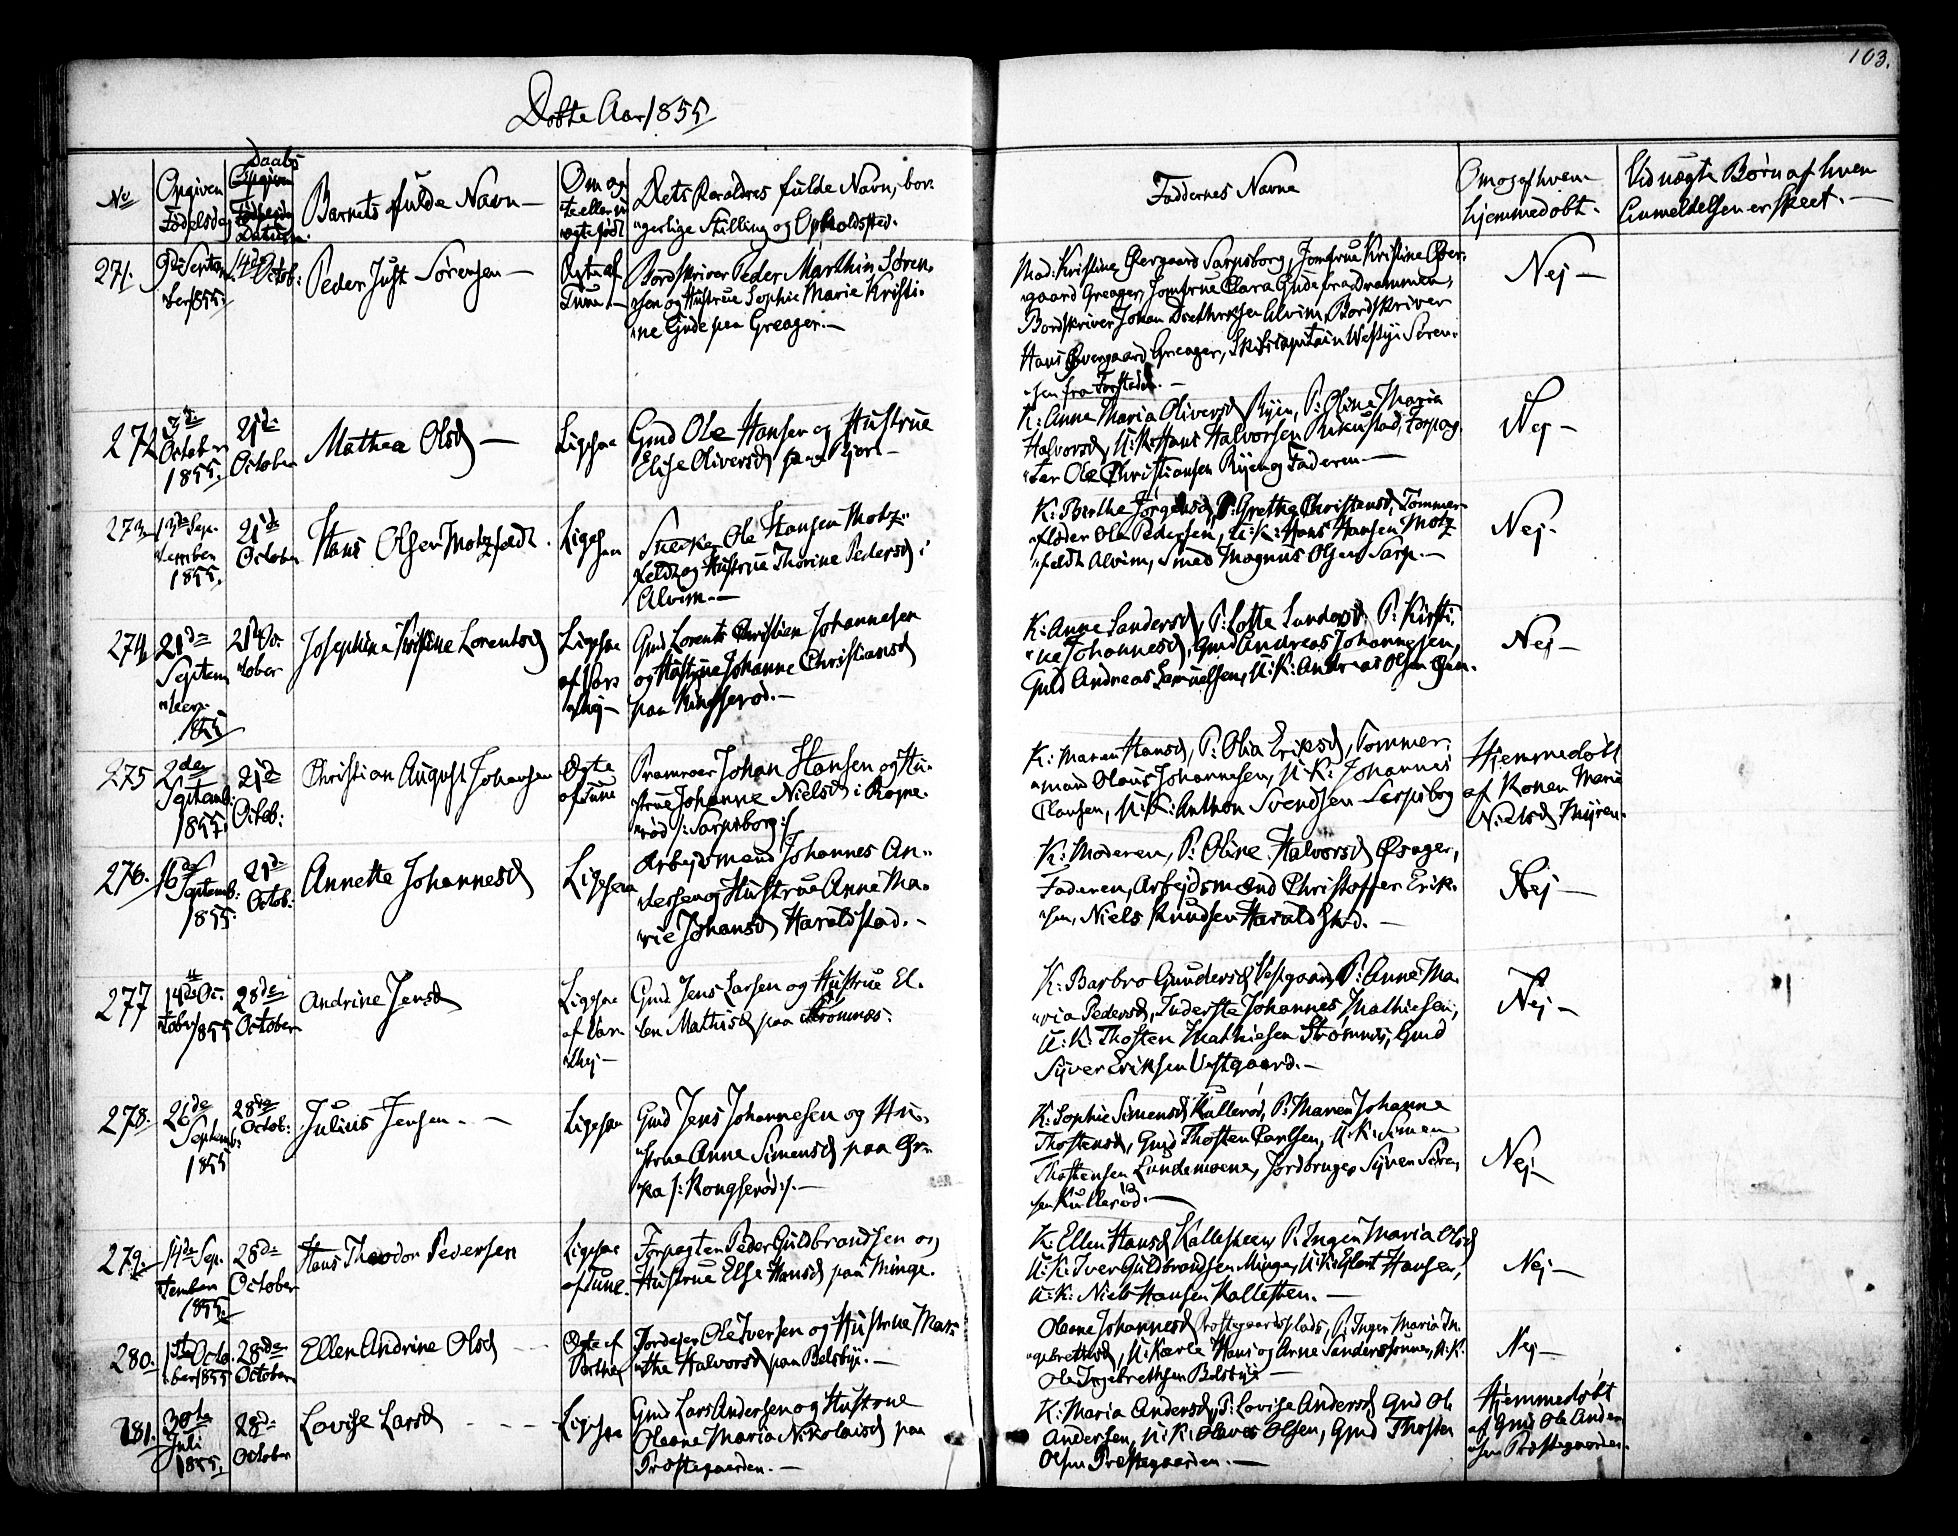 103.
Døbte Aar 1855
No
Opgiven
Fødselsdag
Daabs
Datum.
Barnets fulde Navn
Om æg
te eller u
ægte født
Dets Forældres fulde Navn, bor-
gerlige Stilling og Opholdssted.
Faddernes Navne
Om og af hvem
hjemmedøbt.
Ved uægte Børn af hvem
Anmeldelsen er skeet.
271.
9de Septem
ber 1855.
14de Octob:
Peder Just Sørensen
Ægte af
Tune
Bordskriver Peder Marthin Søren-
sen og Hustrue Sophie Marie Kristi-
ne Gude paa Greager.
Mad: Kristine Øvergaard Sarpsborg, Jomfrue Kristine Øver-
gaard Greager, Jomfrue Clara Gude fra Drammen,
Bordskriver Johan Alvim, Bordskriver
Hans Øvergaard Greager, Skibscaptain Søren-
sen fra
Nej
272
3de
October
1855.
21de
October
Mathea Olsd
Ligesaa
Gmd Ole Hansen og Hustrue
Elise Oliversd paa
K: Anne Maria Oliversd Ryen, P: Oline Maria
Halvorsd, U: K: Hans Halvorsen Forpag-
ter Ole Christiansen Ryen og Faderen
Nej
273
13de Sep-
tember
1855.
21de
October
Hans Olsen Motzfeldt.
Ligesaa
Ole Hansen Motz-
feldt og Hustrue Thorine Pedersd i
Alvim.
K: Berthe Jørgensd, P: Grethe Christensd, Tømmer-
fløder Ole Pedersen, U: K: Hans Hansen Motz
feldt Alvim, Smed Magnus Olsen Sarp.
Nej.
274
21de
Septem
ber.
1855
21de Oc-
tober
Josephine Kristine Lorentsd
Ligesaa
af Vars
Gmd Lorents Christian Johannesen
og Hustrue Johanne Christiansd
paa
K: Anne Sandersd, P: Lotte P: Kisti-
ne Johannesd, Gmd Andreas Johannesen,
Gmd Andreas Samuelsen, U: K: Andreas Olsen
Nej
275
2den
Septemb:
1855.
21de
Octob:
Christian August Johansen
Ægte
af Tune
Pramroer Johan Hansen og Hu-
strue Johanne Nielsd i
rød /: Sarpsborg :/
K: Maren Hansd, P: Olia Eriksd, Tømmer-
mand Olaus Johannesen, U: K: Johannes
Clausen, U: K: Anthon Svendsen Sarpsborg
Hjemmedøbt
af Konen Maria
Nielsd Myren.
276.
16de
Septemb:
1855.
21de
Octob.
Annette Johannesd
Ligesaa
Arbejdsmand Johannes An-
dersen og Hustrue Anne Ma-
rie Johansd Haraldstad.
K: Moderen, P: Oline Halvorsd
Faderen, Arbejdsmand Christoffer Erik-
sen, Niels Knudsen Haraldstad.
Nej
277
14de Oc-
tober 1855
28de
October
Andrine Jensd
Ligesaa
af Var
Gmd Jens Larsen og Hustrue El-
len Mathisd paa Strømnes.
K: Barbro Gundersd Vestgaard, P: Anne Ma-
ria Pedersd, Johannes Mathiesen,
U: K: Thosten Mathiesen Strømnes, Gmd
Syver Eriksen Vestgaard.
Nej
278.
26de
Septemb:
1855
28de
Octob:
Julius Jensen.
Ligesaa
Gmd Jens Johannesen og Hu-
strue Anne Simensd paa
/: Kongserød :/.
K: Sophie Simensd Kullerød, P: Maren Johanne
Thostensd, Gmd Thosten Carlsen, U: K: Simen
Thostensen Lundemoene, Jordbruger Syver Søren
sen Kullerød.
Nej
279.
14de Sep-
tember
1855.
28de
October
Hans Theodor Pedersen
Ligesaa
af Tune.
Forpagter Peder Guldbrandsen og
Hustrue Else Hansd paa Minge.
K: Ellen Hansd P: Ingen Maria Olsd
U: K: Iver Guldbrandsen Minge, U: K: Hansen,
U: K: Niels Hansen
Nej
280.
1ste Octo-
ber 1855
28de
October
Ellen Andrine Olsd
Ægte af
Jordejer Ole Iversen og Hustrue Mar-
the Halvorsd paa Belsbye.
Oleane Johannesd Præstegaardsplads, P: Inger Maria In-
gebrethsd, U: Karle Hans og Arne Sanderssønner, U: K:
Ole Ingebrethsen Belsbye
Nej
281.
30te
Juli
1855.
28de
October
Lovise Larsd
Ligesaa
Gmd Lars Andersen og Hustrue
Oleane Maria Nikolaisd paa
Præstegaarden.
K: Maria Andersd, P: Lovise Andersd, Gmd Ole
Andersen, U: K: Olaves Olsen, Gmd Thosten
Olsen Præstegaarden.
Hjemmedøbt
af Gmd Ole Ander
sen Præstegaarden.